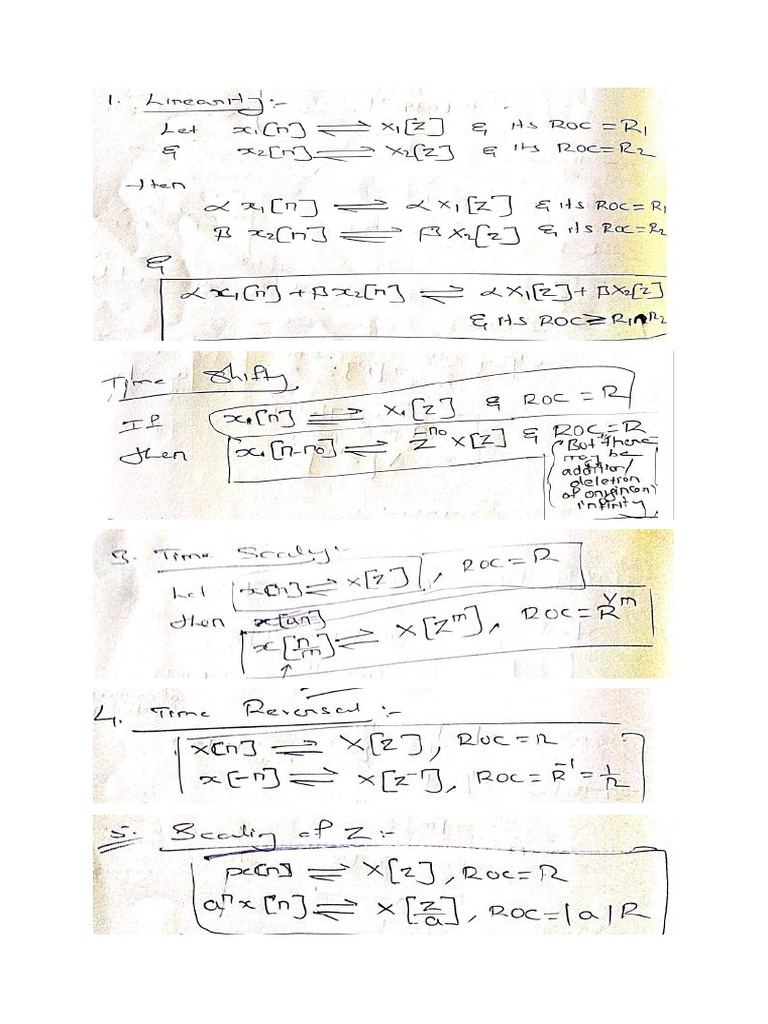 1. Linearity:-
Let x₁[n] ⇌ X₁[Z] & its ROC = R₁
& x₂[n] ⇌ X₂[Z] & its ROC = R₂
then
α x₁[n] ⇌ α X₁[Z] & its ROC = R₁
β x₂[n] ⇌ β X₂[Z] & its ROC = R₂
&
α x₁[n] + β x₂[n] ⇌ α X₁[Z] + β X₂[Z]
& its ROC ≥ R₁∩R₂
Time Shifty
If x[n] ⇌ X[Z] & ROC = R
then x[n-n₀] ⇌ Z^-n₀ X[Z] & ROC = R
But there
may be
addition/
deletion
of origin (or)
infinity
3. Time Scaly:-
Let x[n] ⇌ X[Z], ROC = R
then x[an]
x[n/m] ⇌ X[Z^m], ROC = R^1/m
4. Time Reversal:-
x[n] ⇌ X[Z], ROC = R
x[-n] ⇌ X[Z⁻¹], ROC = R⁻¹ = 1/R
5. Scaling of Z:-
x[n] ⇌ X[Z], ROC = R
aⁿx[n] ⇌ X[Z/a], ROC = |a|R